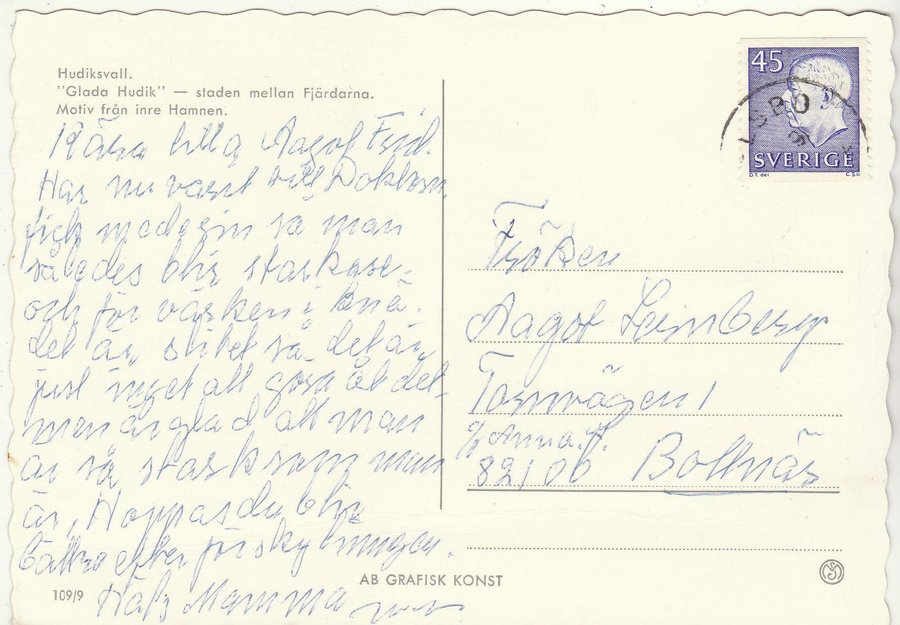 Hudiksvall.
"Glada Hudik" — staden mellan Fjärdarna.
Motiv från inre Hamnen.
Kära lilla Aagot Frid.
Har nu varit till Doktorn
fick medesin så man
således blir starkare.
och för värken i knä.
det är slitet så det är
just inget att göra åt det
men är glad att man
är så stark som man
är, Hoppas du blir
bättre efter förskylningen.
Häls Mamma
45
SBO
SVERIGE
D.T. del
C.S.
Fröken
Aagot Leinberg
Tornvägen 1
c/o Anna.
82100 Bollnäs
AB GRAFISK KONST
109/9